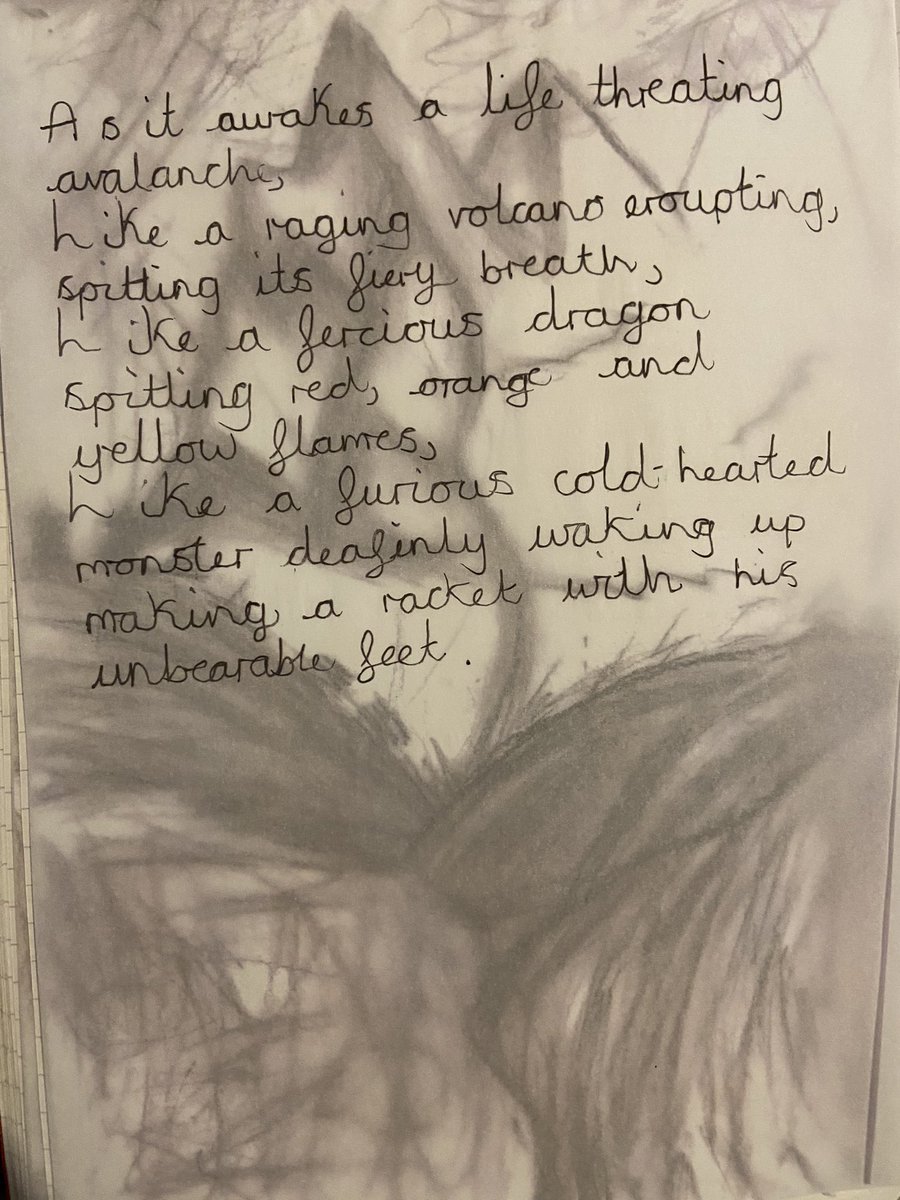 As it awakes a life threating
avalanche,
Like a raging volcano eroupting,
spitting its fiery breath,
Like a fercious dragon
spitting red, orange and
yellow flames,
Like a furious cold-hearted
monster deafinly waking up
making a racket with his
unbearable feet.